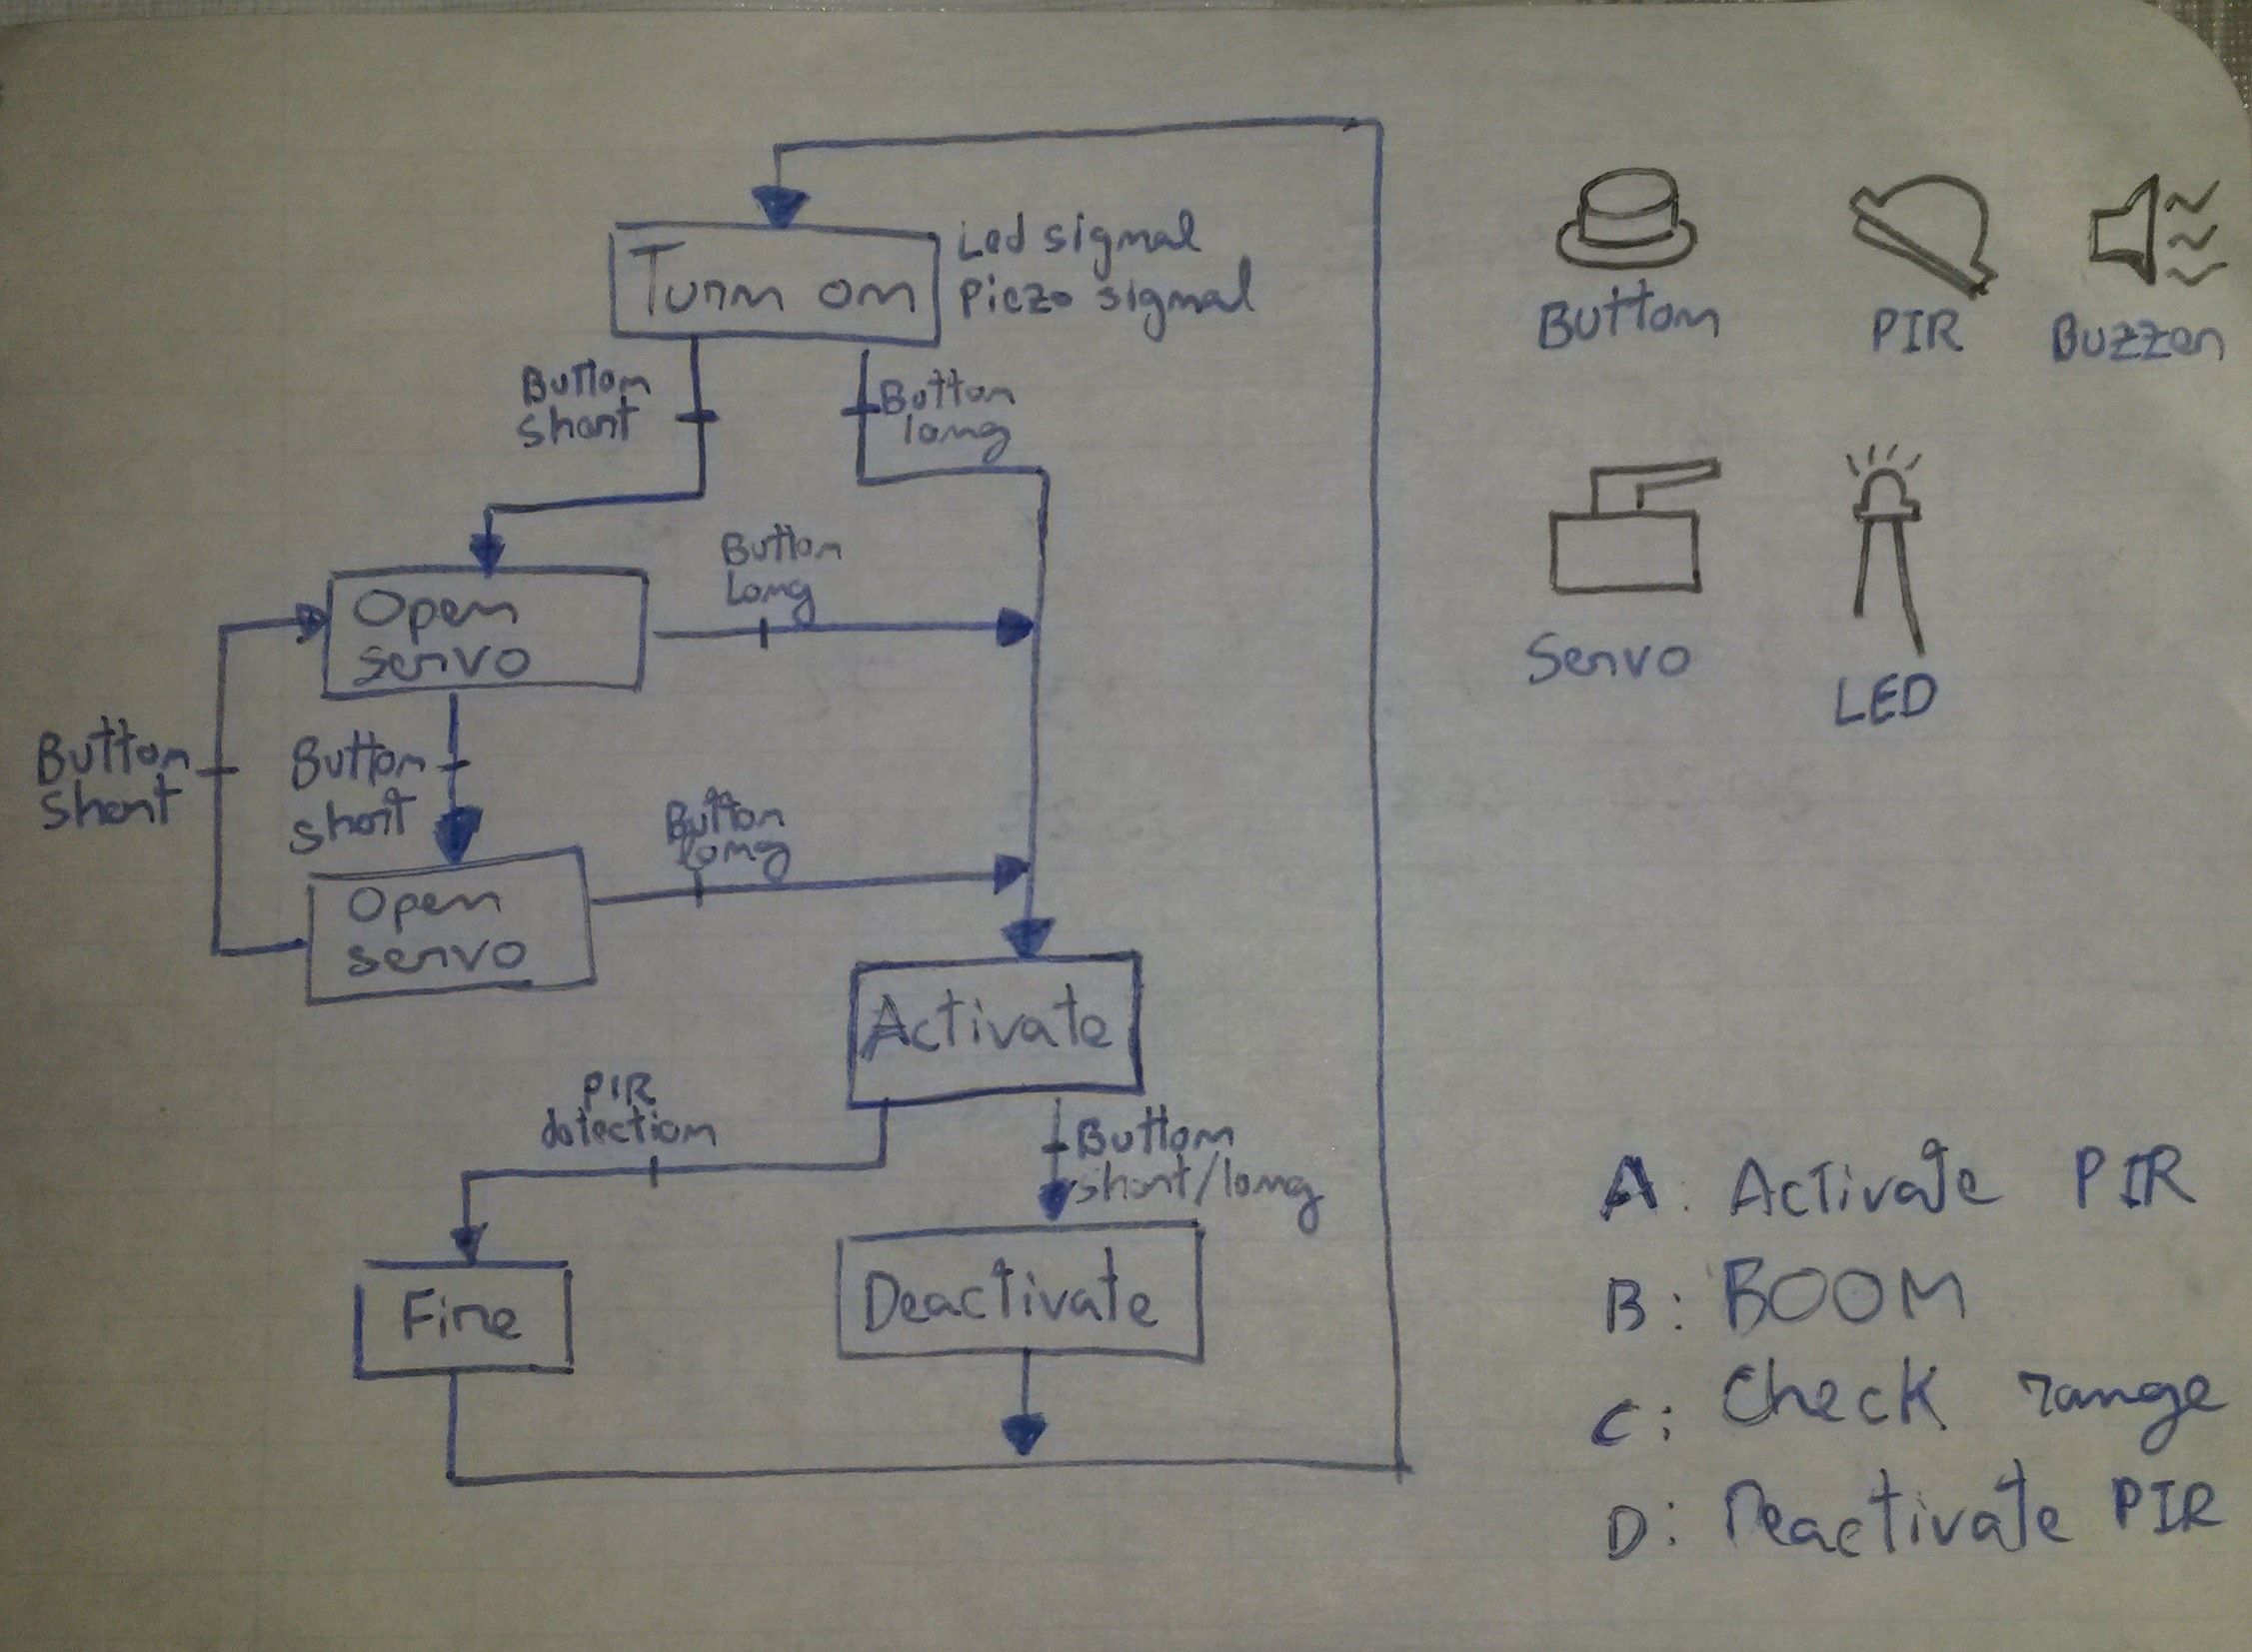 Turn on
Led signal
Piezo signal
Button
short
Button
long
Open
servo
Button
Long
Button
short
Button
short
Button
long
Open
servo
Activate
PIR
detection
Button
short/long
Fire
Deactivate
Button
PIR
Buzzer
Servo
LED
A: Activate PIR
B: BOOM
C: Check range
D: Deactivate PIR